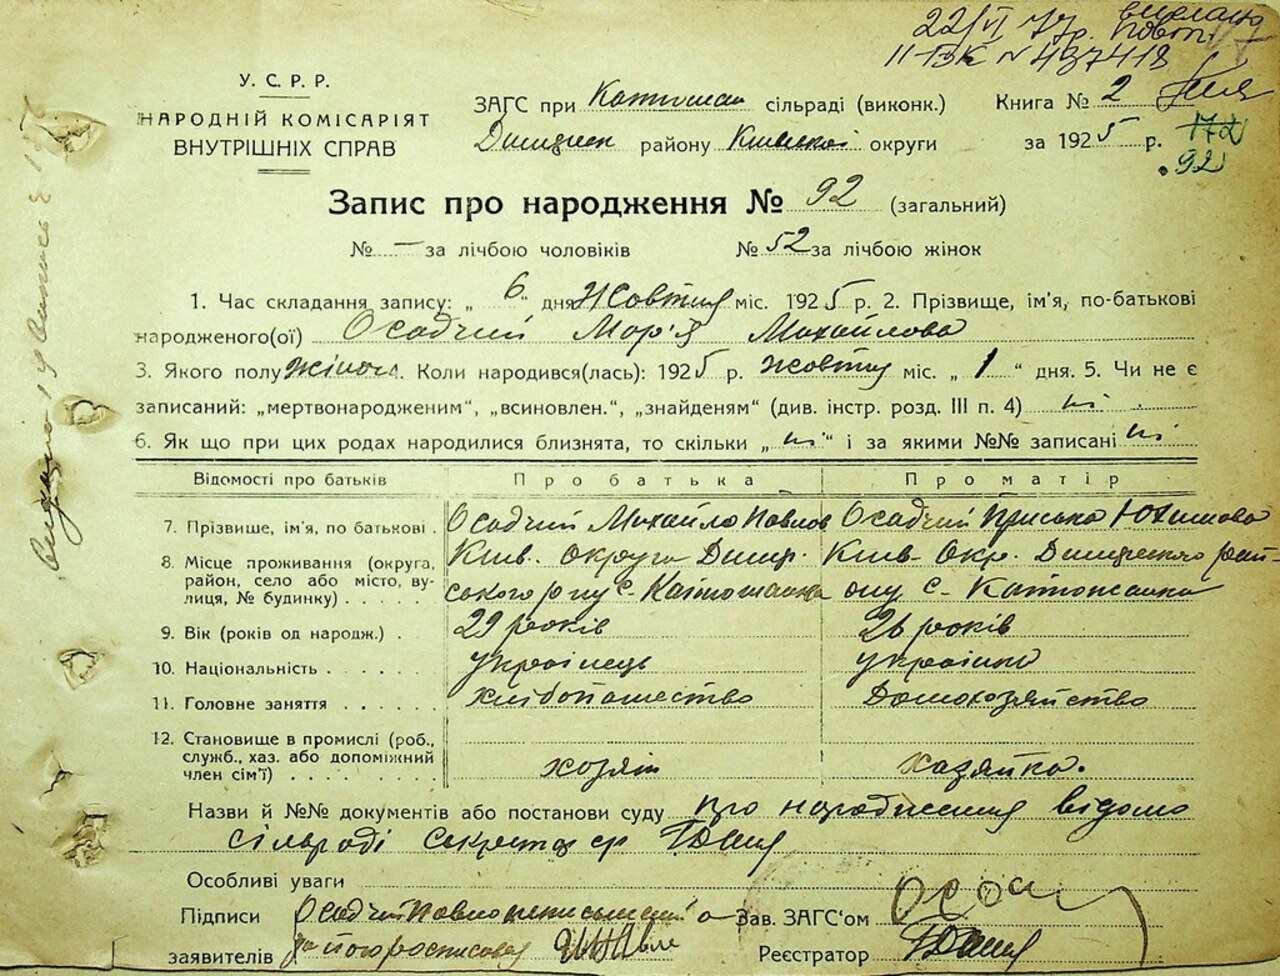 22/VI 77р.
II-БК № 437418
У. С. Р. Р.
НАРОДНІЙ КОМІСАРІЯТ
ВНУТРІШНІХ СПРАВ
ЗАГС при Катюжан сільраді (виконк.)
Димерськ району Київської округи
Книга № 2
за 1925 р.
172
92
Запис про народження № 92 (загальний)
№ — за лічбою чоловіків № 52 за лічбою жінок
1. Час складання запису: „ 6 “ дня Жовтня міс. 1925 р. 2. Прізвище, ім'я, по-батькові
народженого(ої) Осадчий Мар'я Михайлова
3. Якого полу жіноч. Коли народився(лась): 1925 р. жовтня міс. „ 1 “ дня. 5. Чи не є
записаний: „мертвонародженим“, „всиновлен.“, „знайденям“ (див. інстр. розд. III п. 4) ні
6. Як що при цих родах народилися близнята, то скільки „ ні “ і за якими №№ записані ні
Відомості про батьків Про батька Про матір
7. Прізвище, ім'я, по батькові . Осадчий Михайло Павлов Осадчий Приська Юхимова
8. Місце проживання (округа, район, село або місто, вулиця, № будинку) . . . . . Київ. округа Димерського р-ну с. Катюжанка Київ. Окр. Димерського району с. Катюжанка
9. Вік (років од народж.) . 29 років 26 років
10. Національність . . . . . . українець українка
11. Головне заняття . . . . . . хлібопашество Домохозяйство
12. Становище в промислі (роб., служб., хаз. або допоміжний член сім'ї) . . . . . . . . хозяін хазяйка.
Назви й №№ документів або постанови суду про народження відомо
сільраді Секретар с/р
Особливі уваги
Підписи Осадчий Павло неписьменний а Зав. ЗАГС'ом Осад
заявителів за його росписався Реєстратор